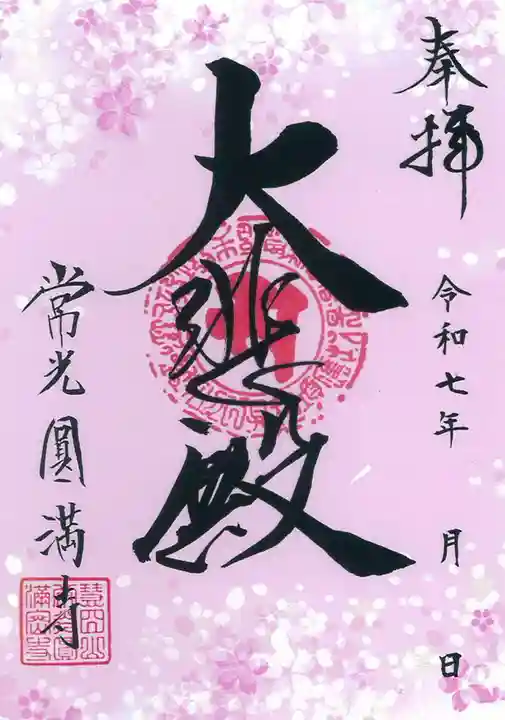 奉拝
令和七年　月　日
大悲殿
常光圓満寺